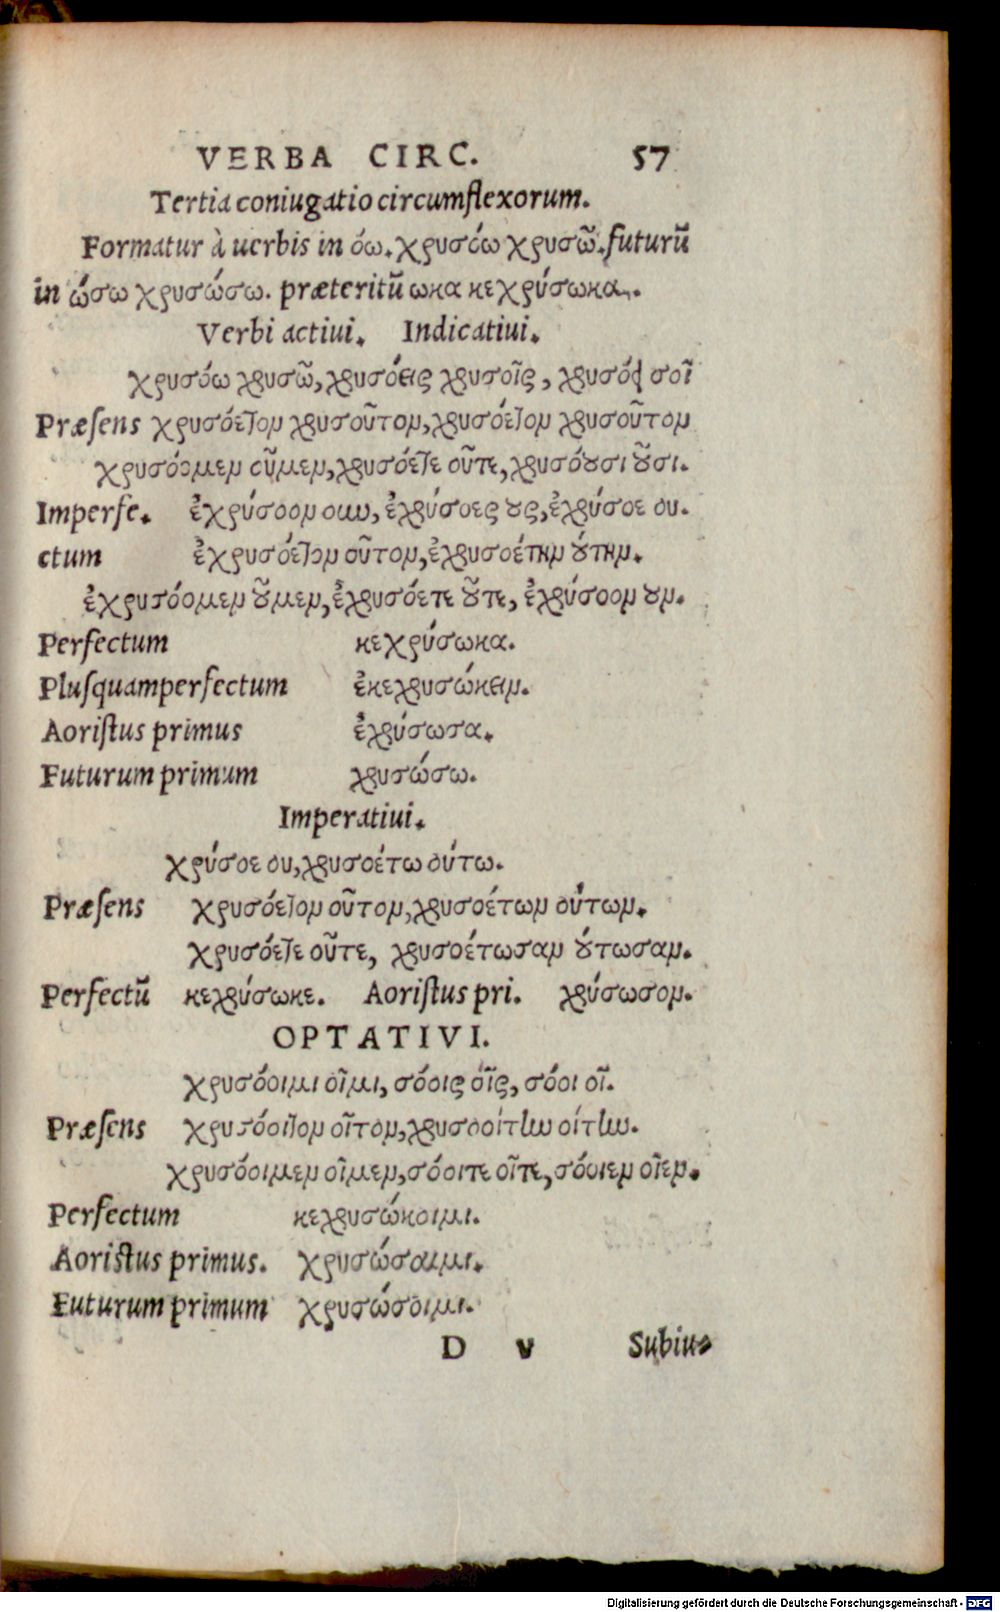 VERBA CIRC. 57
Tertia coniugatio circumflexorum.
Formatur à uerbis in όω. χρυσόω χρυσῶ. futurũ
in ώσω χρυσώσω. præteritũ ωκα κεχρύσωκα.
Verbi actiui. Indicatiui.
χρυσόω χρυσῶ, χρυσόεις χρυσοῖς, χρυσόει σοῖ
Præsens χρυσόετον χρυσοῦτον, χρυσόετον χρυσοῦτον
χρυσόομεν οῦμεν, χρυσόετε οῦτε, χρυσόουσι οῦσι.
Imperfe. ἐχρύσοον ουν, ἐχρύσοες ους, ἐχρύσοε ου.
ctum ἐχρυσόετον οῦτον, ἐχρυσοέτην ούτην.
ἐχρυσόομεν οῦμεν, ἐχρυσόετε οῦτε, ἐχρύσοον ουν.
Perfectum κεχρύσωκα.
Plusquamperfectum ἐκεχρυσώκειν.
Aoristus primus ἐχρύσωσα.
Futurum primum χρυσώσω.
Imperatiui.
χρύσοε ου, χρυσοέτω ούτω.
Præsens χρυσόετον οῦτον, χρυσοέτων ούτων.
χρυσόετε οῦτε, χρυσοέτωσαν ούτωσαν.
Perfectũ κεχρύσωκε. Aoristus pri. χρύσωσον.
OPTATIVI.
χρυσόοιμι οῖμι, σόοις οῖς, σόοι οῖ.
Præsens χρυσόοιτον οῖτον, χρυσοοίτην οίτην.
χρυσόοιμεν οῖμεν, σόοιτε οῖτε, σόοιεν οῖεν.
Perfectum κεχρυσώκοιμι.
Aoristus primus. χρυσώσαιμι.
Futurum primum χρυσώσοιμι.
D v Subiu-
Digitalisierung gefördert durch die Deutsche Forschungsgemeinschaft - DFG